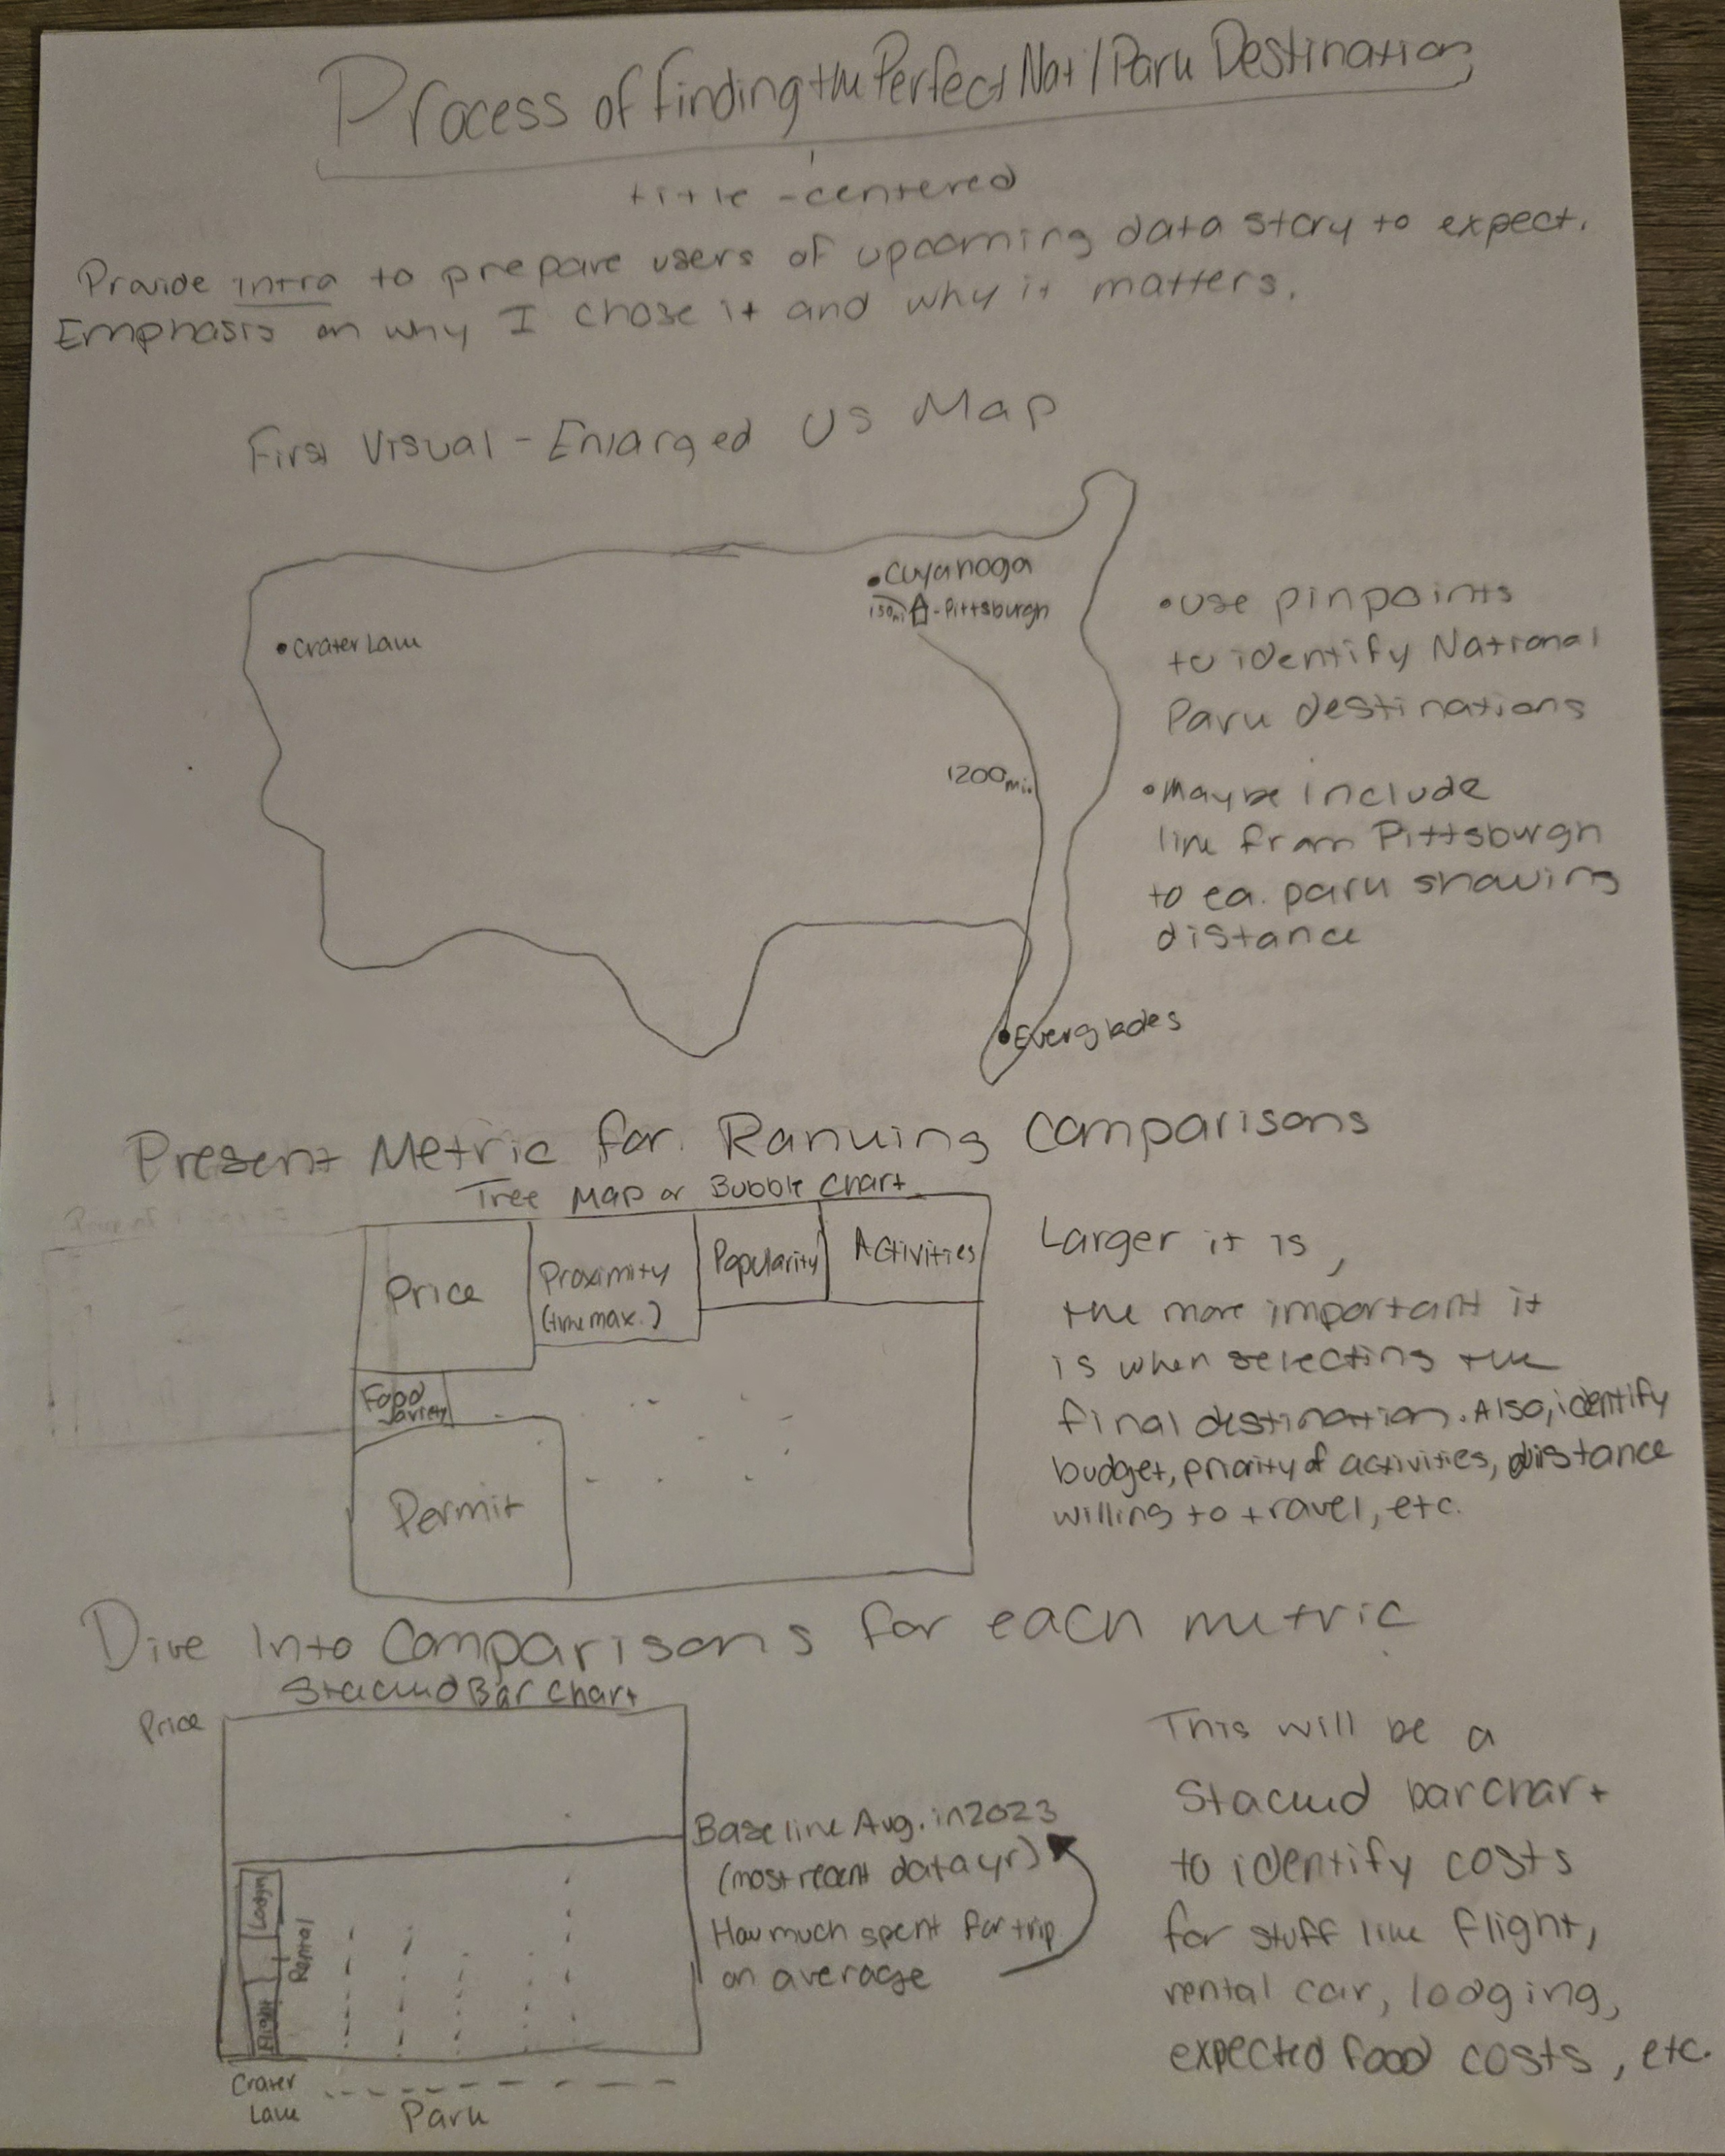 Process of Finding the Perfect Nat'l Park Destination
title - centered
Provide intro to prepare users of upcoming data story to expect.
Emphasis on why I chose it and why it matters.
First Visual - Enlarged US Map
• Cuyahoga
150mi - Pittsburgh
• Crater Lake
1200mi.
• Everglades
• use pinpoints
to identify National
Park destinations
• Maybe include
line from Pittsburgh
to ea. park showing
distance
Present Metric for Ranking Comparisons
Tree Map or Bubble Chart
Price
Proximity
(time max.)
Popularity
Activities
Food
Variety
Permit
Larger it is,
the more important it
is when selecting the
final destination. Also, identify
budget, priority of activities, distance
willing to travel, etc.
Dive Into Comparisons for each metric
Stacked Bar Chart
Price
Lodging
Rental
Flight
Crater
Lake
Park
Baseline Avg. in 2023
(most recent data yr)
How much spent for trip
on average
This will be a
Stacked bar chart
to identify costs
for stuff like flight,
rental car, lodging,
expected food costs, etc.